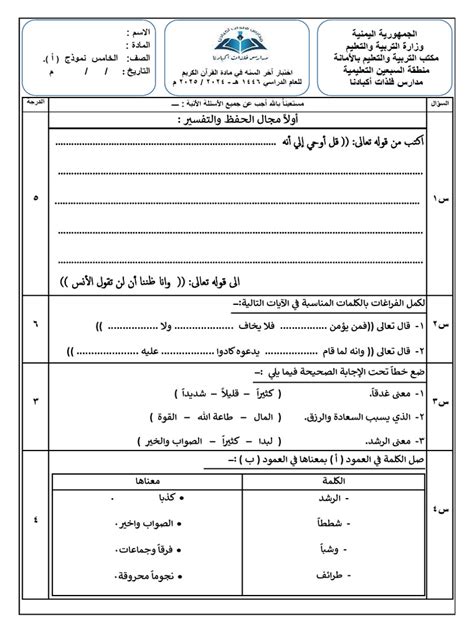 الجمهورية اليمنية
وزارة التربية والتعليم
مكتب التربية والتعليم بالأمانة
منطقة السبعين التعليمية
مدارس فلذات أكبادنا
مدارس فلذات أكبادنا
اختبار آخر السنة في مادة القرآن الكريم
للعام الدراسي ١٤٤٦ هـ - ٢٠٢٤ / ٢٠٢٥ م
الاسم :
المادة :
الصف: الخامس نموذج ( أ ).
التاريخ : / / م
السؤال
مستعيناً بالله أجب عن جميع الأسئلة الآتية : ــ
الدرجة
أولاً مجال الحفظ والتفسير :
س١
اكتب من قوله تعالى: (( قل أوحي إلي أنه ........................................
........................................
........................................
........................................
........................................
الى قوله تعالى: (( وانا ظننا أن لن تقول الأنس ))
٥
س٢
لكمل الفراغات بالكلمات المناسبة في الآيات التالية:–
١- قال تعالى ((فمن يؤمن .................. فلا يخاف .................. ولا .................. ))
٢- قال تعالى (( وانه لما قام .................. يدعوه كادوا .................. عليه .................. ))
٦
س٣
ضع خطاً تحت الإجابة الصحيحة فيما يلي :–
١- معنى غدقاً. ( كثيراً – قليلاً – شديداً )
٢- الذي يسبب السعادة والرزق. ( المال – طاعة الله – القوة )
٣- معنى الرشد. ( لبدا – كثيراً – الصواب والخير )
٣
س٤
صل الكلمة في العمود ( أ ) بمعناها في العمود ( ب ) :–
الكلمة
معناها
- الرشد
• كذبا .
- شططاً
• الصواب واخير .
- وشباً
• فرقاً وجماعات .
- طرائف
• نجوماً محروقة .
٤